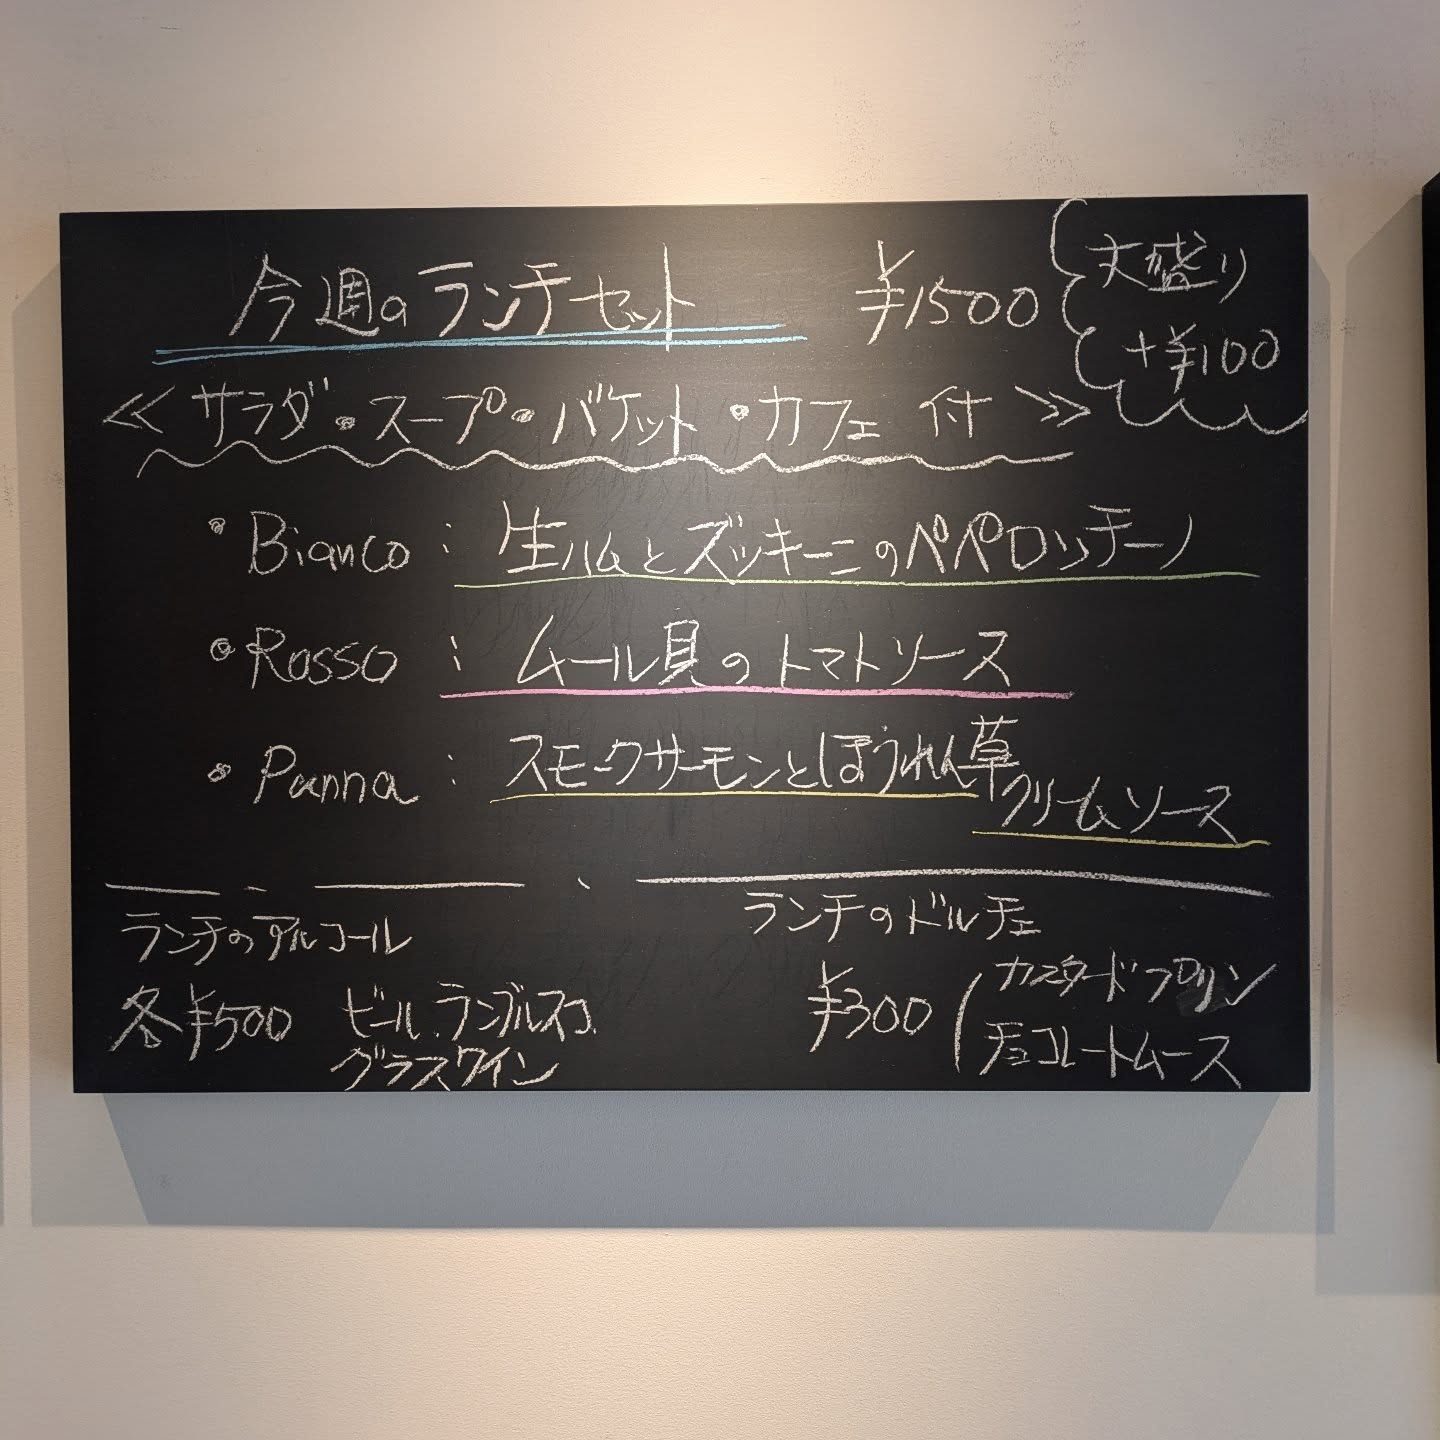 今週のランチセット ¥1500
大盛り
+¥100
≪サラダ・スープ・バケット・カフェ 付≫
・Bianco : 生ハムとズッキーニのペペロンチーノ
・Rosso : ムール貝のトマトソース
・Panna : スモークサーモンとほうれん草
クリームソース
ランチのアルコール
各¥500 ビール、ランブルスコ、
グラスワイン
ランチのドルチェ
¥300 カスタードプリン
チョコレートムース